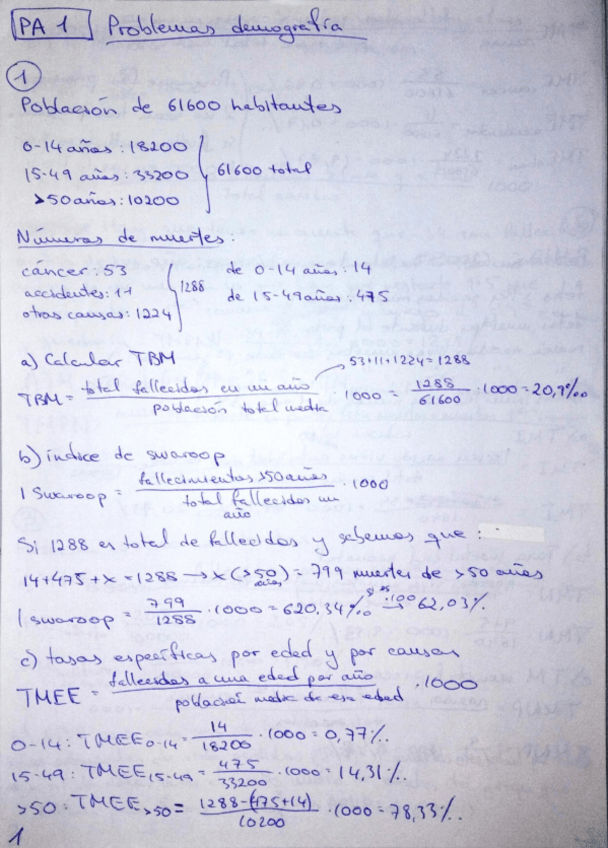 PA 1 Problemas demografía
1
Población de 61600 habitantes
0-14 años: 18200
15-49 años: 33200
>50 años: 10200
61600 total
Números de muertes:
cáncer: 53
accidentes: 11
otras causas: 1224
1288
de 0-14 años: 14
de 15-49 años: 475
a) Calcular TBM
53+11+1224=1288
TBM = total fallecidos en un año / población total media · 1000 = 1288/61600 · 1000 = 20,9‰
b) índice de swaroop
I Swaroop = fallecimientos >50 años / total fallecidos un año · 1000
Si 1288 es total de fallecidos y sabemos que:
14+475+x=1288 → x (>50 años) = 799 muertes de >50 años
I swaroop = 799/1288 · 1000 = 620,34‰ → 62,03%
c) tasas específicas por edad y por causas
TMEE = fallecidos a una edad por año / población media de esa edad · 1000
0-14: TMEE0-14 = 14/18200 · 1000 = 0,77%.
15-49: TMEE15-49 = 475/33200 · 1000 = 14,31%.
>50: TMEE>50 = 1288-(475+14)/10200 · 1000 = 78,33%.
1